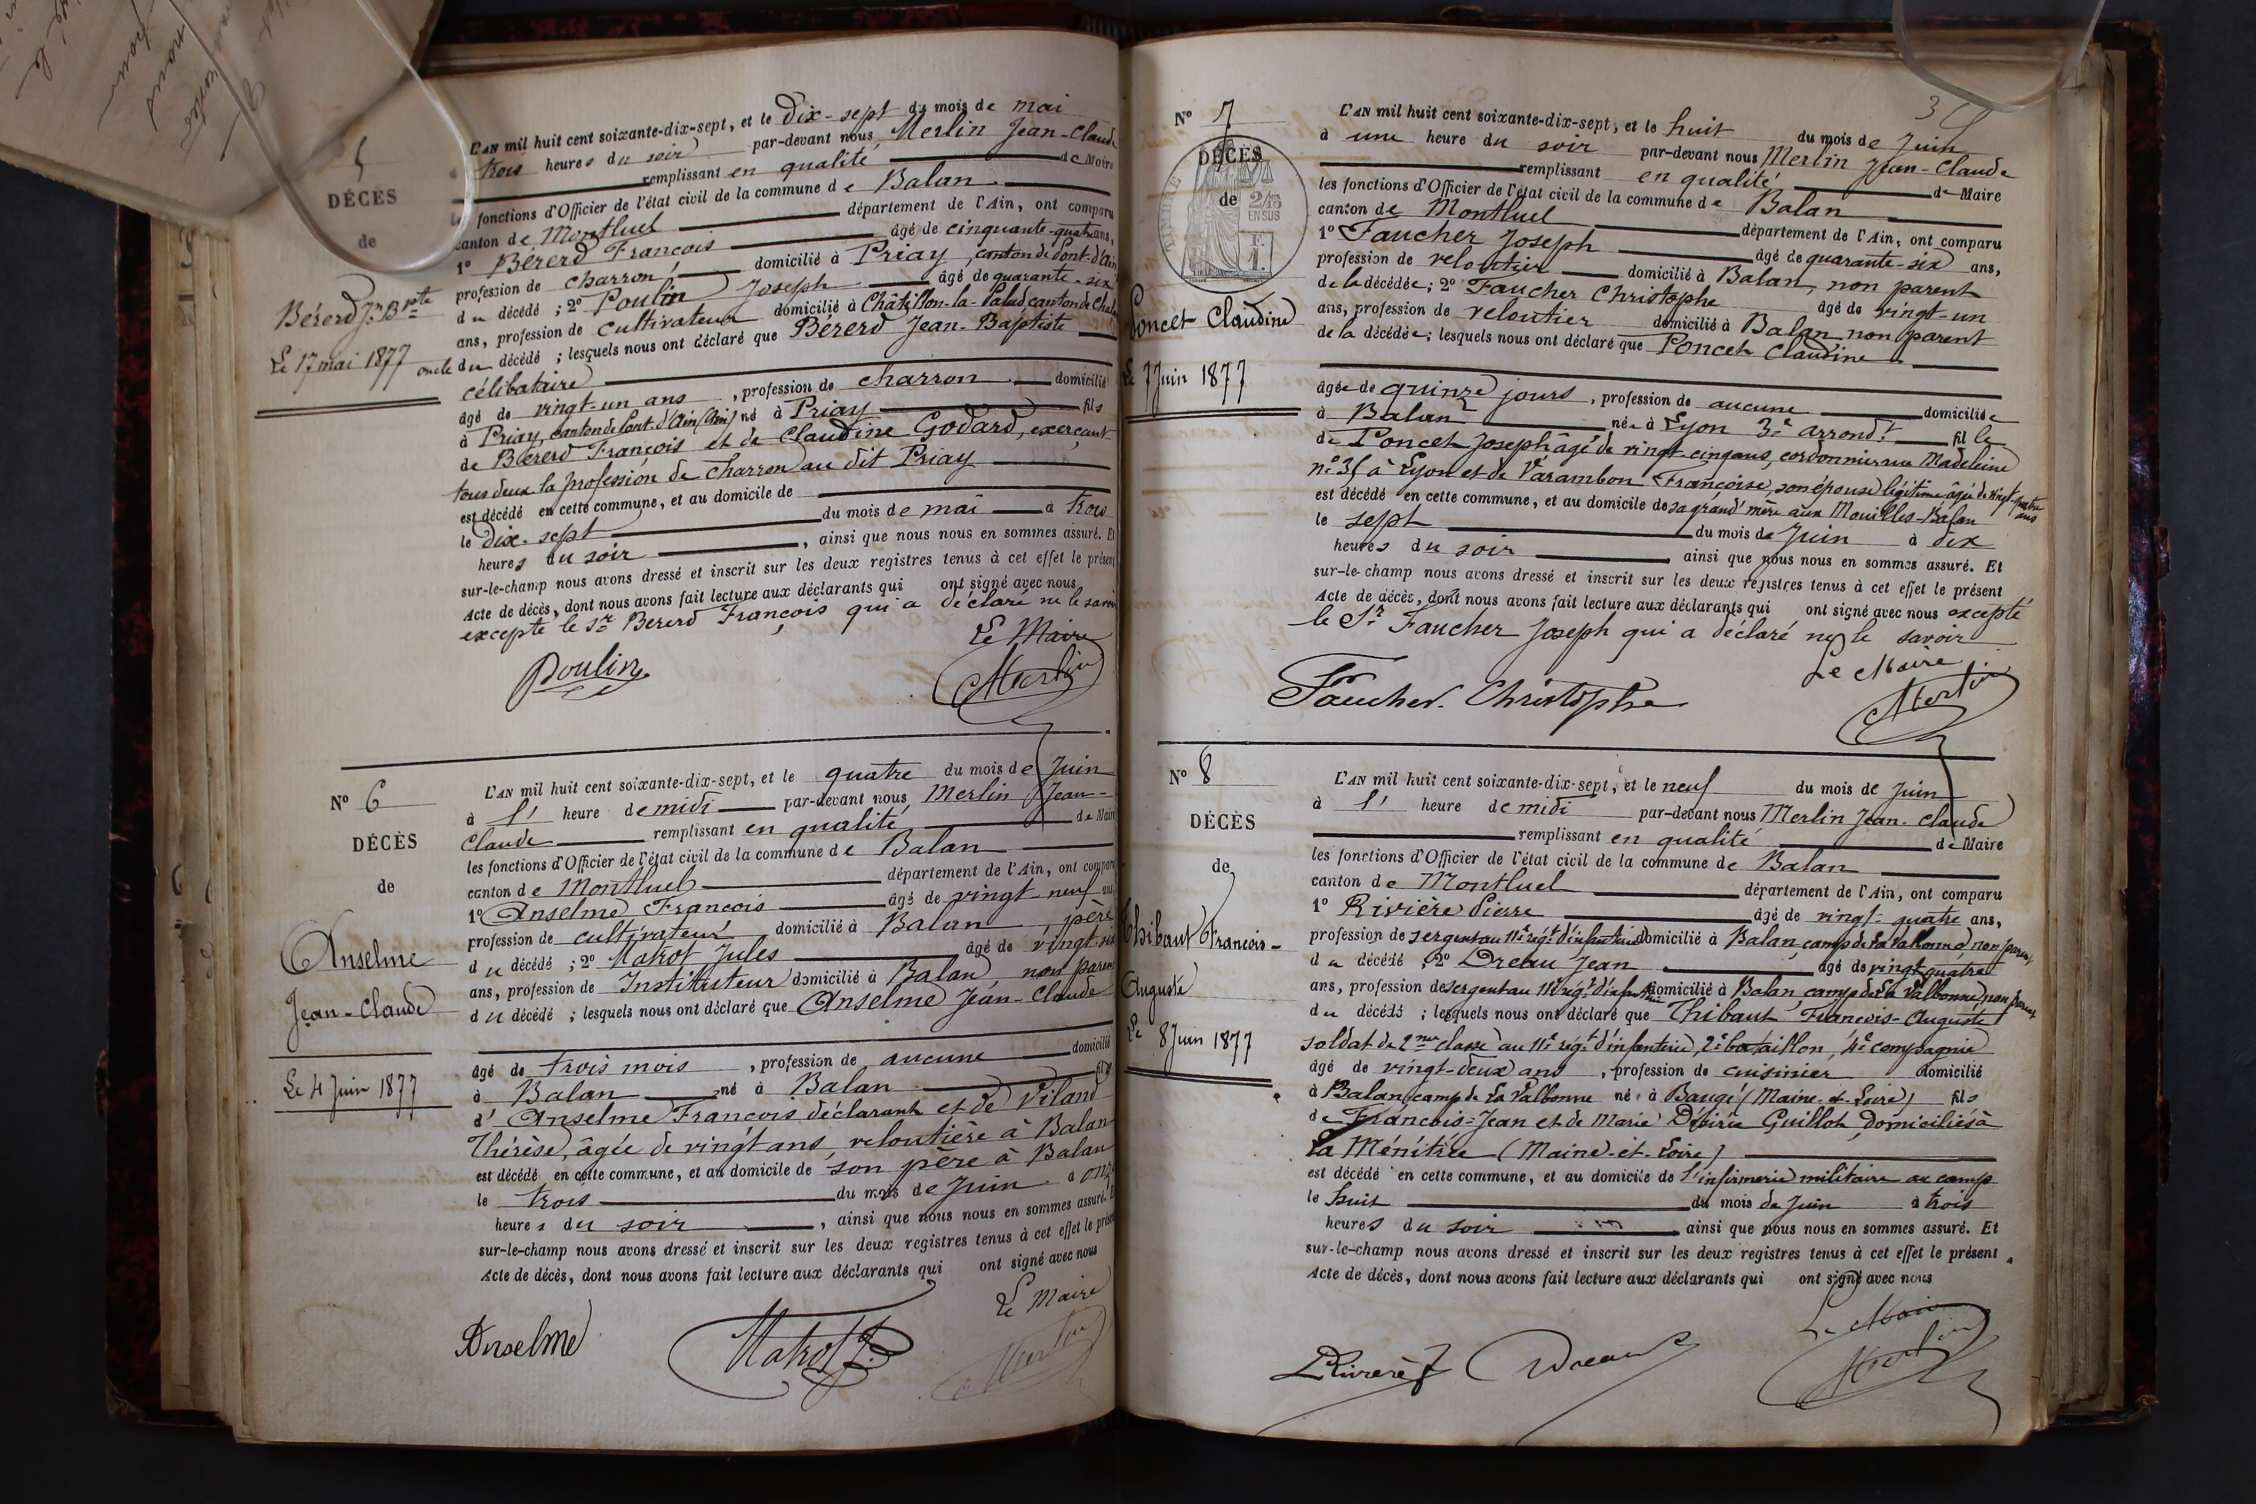 5
DÉCÈS
de
Bérerd Jn Bpte
Le 17 mai 1877
L'AN mil huit cent soixante-dix-sept, et le Dix-sept du mois de mai
trois heures du soir par-devant nous Merlin Jean-Claude
remplissant en qualité de Maire
les fonctions d'Officier de l'état civil de la commune de Balan
canton de Montluel département de l'Ain, ont comparu
1º Bérerd François âgé de cinquante-quatre ans,
profession de charron domicilié à Priay, canton de Pont-d'Ain
du décédé ; 2º Poulin Joseph âgé de quarante-six
ans, profession de cultivateur domicilié à Châtillon-la-Palud canton de
oncle du décédé ; lesquels nous ont déclaré que Bérerd Jean-Baptiste
célibataire
âgé de vingt-un ans, profession de charron domicilié
à Priay, canton de Pont-d'Ain (Ain) né à Priay fils
de Bérerd François et de Claudine Godard, exerçant
tous deux la profession de charron au dit Priay
est décédé en cette commune, et au domicile de
le Dix-sept du mois de mai à trois
heures du soir, ainsi que nous nous en sommes assuré. Et
sur-le-champ nous avons dressé et inscrit sur les deux registres tenus à cet effet le présent
Acte de décès, dont nous avons fait lecture aux déclarants qui ont signé avec nous
excepté le Sr Bererd François qui a déclaré ne le savoir
Le Maire
Poulin Merlin
Nº 6
DÉCÈS
de
Anselme
Jean-Claude
Le 4 Juin 1877
L'AN mil huit cent soixante-dix-sept, et le quatre du mois de Juin
à l' heure de midi par-devant nous Merlin Jean-
Claude remplissant en qualité de Maire
les fonctions d'Officier de l'état civil de la commune de Balan
canton de Montluel département de l'Ain, ont comparu
1º Anselme François âgé de vingt-neuf ans
profession de cultivateur domicilié à Balan père
du décédé ; 2º Matrot Jules âgé de vingt-six
ans, profession de Instituteur domicilié à Balan, non parent
du décédé ; lesquels nous ont déclaré que Anselme Jean-Claude
âgé de trois mois, profession de aucune domicilié
à Balan né à Balan fils
d' Anselme François déclarant et de Viland
Thérèse, âgée de vingt ans, veloutière à Balan
est décédé en cette commune, et au domicile de son père à Balan
le trois du mois de Juin à onze
heures du soir, ainsi que nous nous en sommes assuré. Et
sur-le-champ nous avons dressé et inscrit sur les deux registres tenus à cet effet le présent
Acte de décès, dont nous avons fait lecture aux déclarants qui ont signé avec nous
Le Maire
Anselme Matrot J. Merlin
Nº 7
DÉCÈS
de
2/10
EN SUS
Poncet Claudine
Le 7 Juin 1877
L'AN mil huit cent soixante-dix-sept, et le huit du mois de Juin
à une heure du soir par-devant nous Merlin Jean-Claude
remplissant en qualité de Maire
les fonctions d'Officier de l'état civil de la commune de Balan
canton de Montluel département de l'Ain, ont comparu
1º Faucher Joseph âgé de quarante-six ans,
profession de veloutier domicilié à Balan, non parent
de la décédée ; 2º Faucher Christophe âgé de vingt-un
ans, profession de veloutier domicilié à Balan non parent
de la décédée ; lesquels nous ont déclaré que Poncet Claudine
âgée de quinze jours, profession de aucune domiciliée
à Balan née à Lyon 3e arrondt fille
de Poncet Joseph âgé de vingt-cinq ans, cordonnier rue Madeleine
nº 35 à Lyon et de Varambon Françoise, son épouse légitime âgée de vingt-quatre ans
est décédé en cette commune, et au domicile de sa grand'mère aux Mouilles-Balan
le sept du mois de Juin à dix
heures du soir ainsi que nous nous en sommes assuré. Et
sur-le-champ nous avons dressé et inscrit sur les deux registres tenus à cet effet le présent
Acte de décès, dont nous avons fait lecture aux déclarants qui ont signé avec nous excepté
le Sr Faucher Joseph qui a déclaré ne le savoir
Le Maire
Faucher Christophe Merlin
Nº 8
DÉCÈS
de
Thibaut François-
Auguste
Le 8 Juin 1877
L'AN mil huit cent soixante-dix-sept, et le neuf du mois de Juin
à l' heure de midi par-devant nous Merlin Jean-Claude
remplissant en qualité de Maire
les fonctions d'Officier de l'état civil de la commune de Balan
canton de Montluel département de l'Ain, ont comparu
1º Rivière Pierre âgé de vingt-quatre ans,
profession de sergent au 11e régt d'infanterie domicilié à Balan, camp de La Valbonne, non parent
du décédé ; 2º Dreau Jean âgé de vingt quatre
ans, profession de sergent au 11e régt d'infanterie domicilié à Balan, camp de La Valbonne, non parent
du décédé ; lesquels nous ont déclaré que Thibaut François-Auguste
soldat de 2me classe au 11e régt d'infanterie, 2e bataillon, 4e compagnie
âgé de vingt-deux ans, profession de cuisinier domicilié
à Balan, camp de La Valbonne né à Baugé (Maine-et-Loire) fils
de François-Jean et de Marie Désirée Guillot, domiciliés à
La Ménitrée (Maine-et-Loire)
est décédé en cette commune, et au domicile de l'infirmerie militaire au camp
le huit du mois de Juin à trois
heures du soir ainsi que nous nous en sommes assuré. Et
sur-le-champ nous avons dressé et inscrit sur les deux registres tenus à cet effet le présent
Acte de décès, dont nous avons fait lecture aux déclarants qui ont signé avec nous
Le Maire
Rivière Dreau Merlin